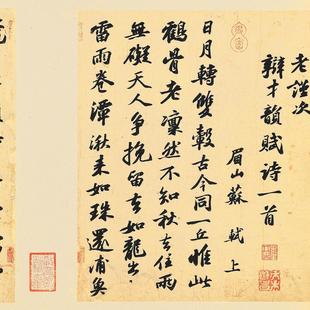 老謹次
辯才韻賦詩一首
眉山蘇軾上
日月轉雙轂古今同一丘惟此
鶴骨老凜然不知秋去住兩
無礙天人爭挽留去如龍出
雷雨卷潭湫来如珠還浦魚